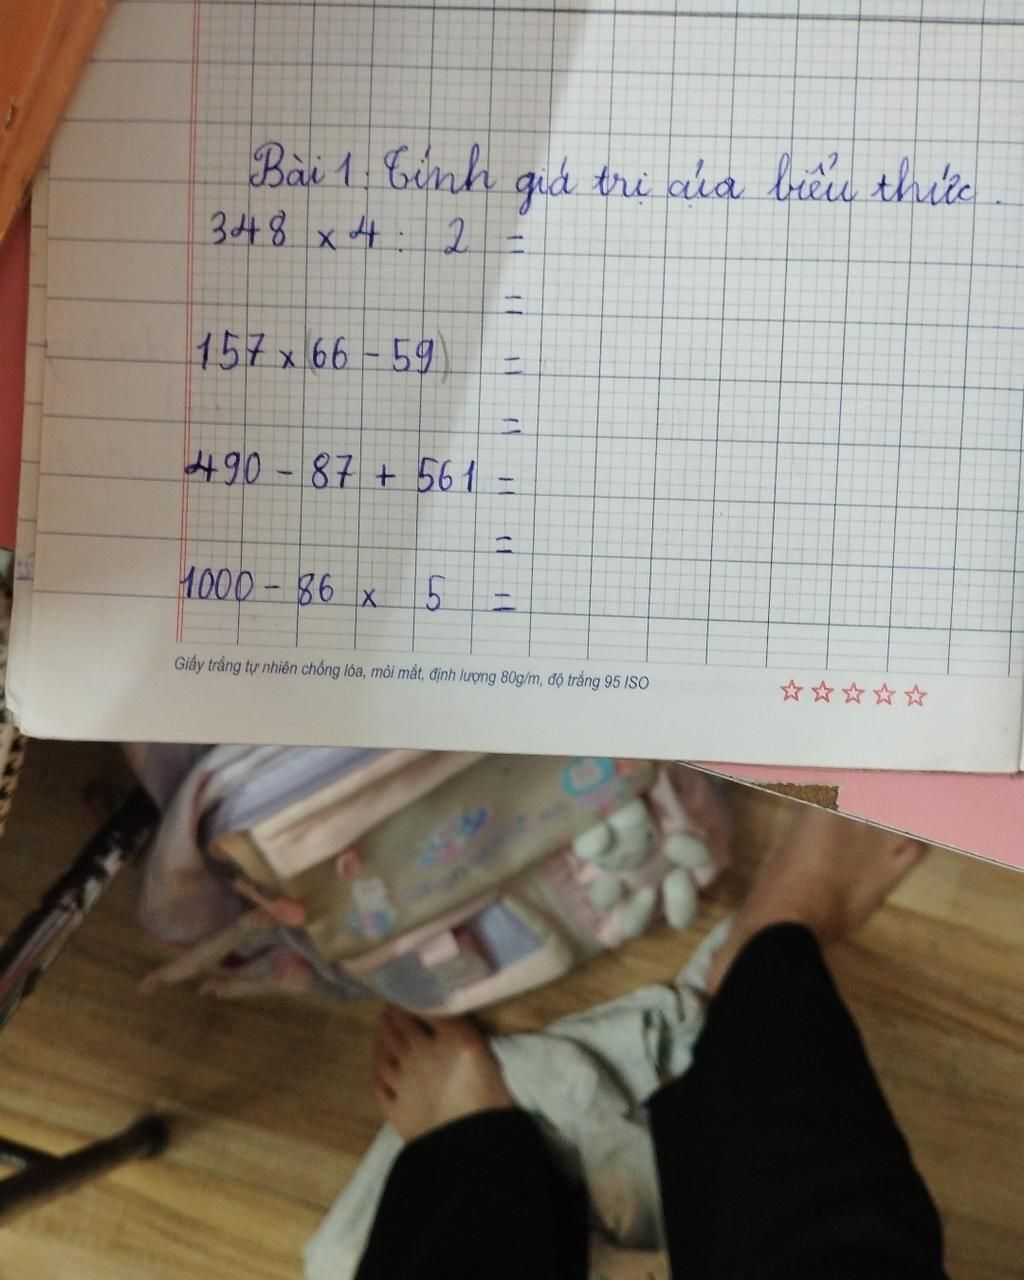 Bài 1: Tính giá trị của biểu thức.
348 x 4 : 2 =
=
157 x (66 - 59) =
=
490 - 87 + 561 =
=
1000 - 86 x 5 =
Giấy trắng tự nhiên chống lóa, mỏi mắt, định lượng 80g/m, độ trắng 95 ISO